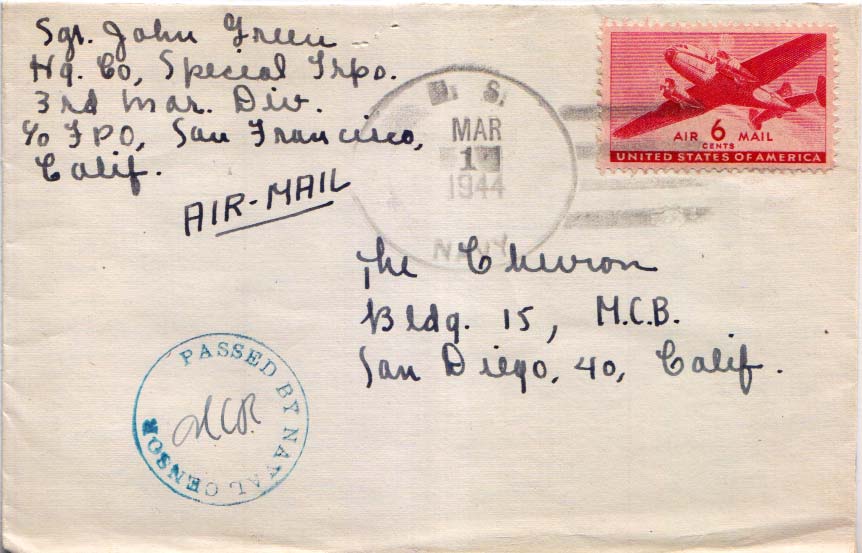 Sgt. John Green
Hq. Co, Special Trps.
3rd Mar. Div.
c/o FPO, San Francisco,
Calif.
AIR-MAIL
U. S.
MAR
1944
NAVY
AIR 6 MAIL
CENTS
UNITED STATES OF AMERICA
The Chevron
Bldg. 15, M.C.B.
San Diego, 40, Calif.
PASSED BY NAVAL CENSOR